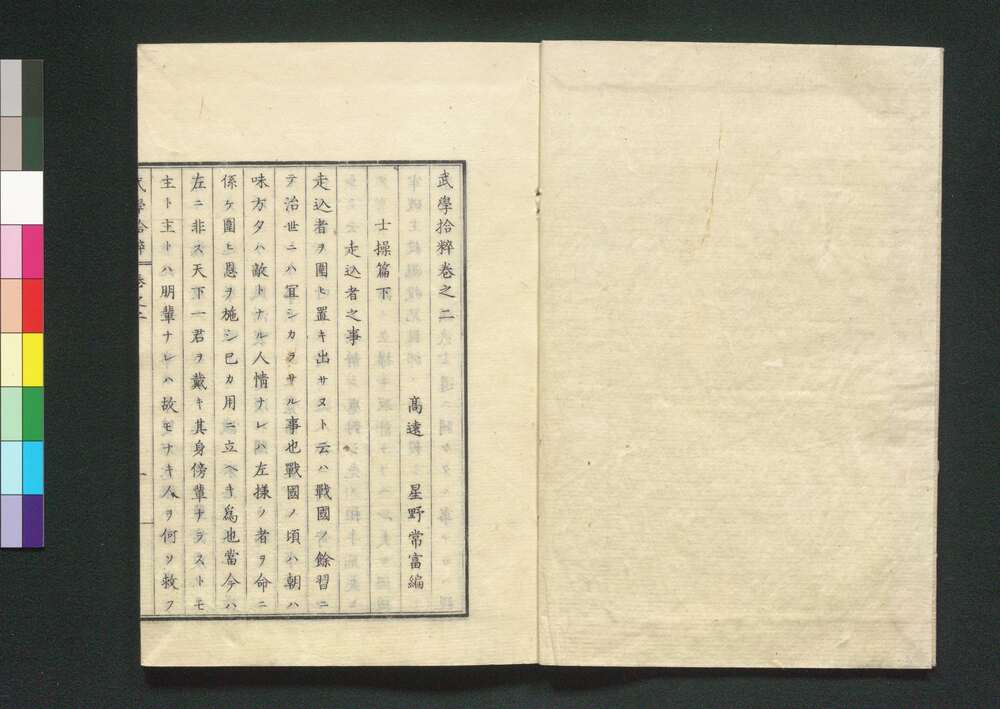 武學拾粹卷之二
高遠 星野常富編
士操篇下
走込者之事
走込者ヲ圍ヒ置キ出サヌト云ハ戰國ノ餘習ニ
テ治世ニハ冝シカラサル事也戰國ノ頃ハ朝ハ
味方夕ハ敵トナル人情ナレハ左様ノ者ヲ命ニ
係ケ圍ヒ恩ヲ施シ已カ用ニ立ヘキ爲也當今ハ
左ニ非ス天下一君ヲ戴キ其身傍輩ナラストモ
主ト主トハ朋輩ナレハ故モナキ人ヲ何ソ救フ
武學拾粹 卷之二 一